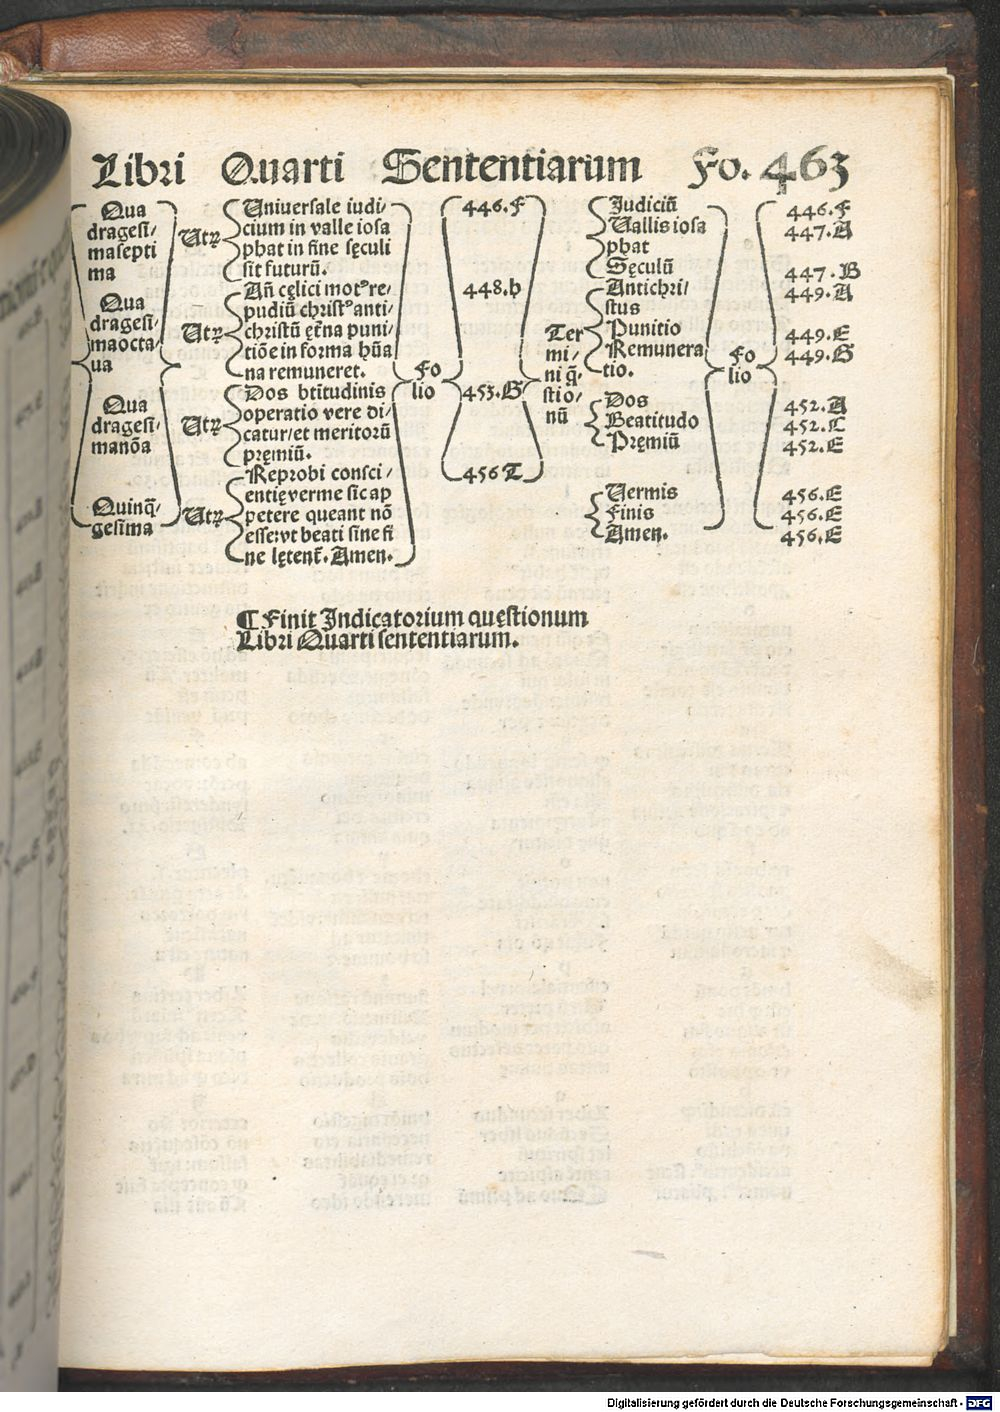 Libri Quarti Sententiarum Fo. 463
Qua
drageſi/
maſepti
ma
Utꝝ
Uniuerſale iudi/
cium in valle ioſa
phat in fine ſęculi
ſit futurū.
446.F
Qua
drageſi/
maocta/
ua
Utꝝ
Añ cęlici motꝰre/
pudiū chriſtꝰanti/
chriſtū ęt̄na puni/
tiōe in forma hūa
na remuneret.
448.h
Qua
drageſi/
manōa
Utꝝ
Dos btītudinis
operatio vere di/
catur/et meritorū
pręmiū.
453.G
Quinq̄/
geſima
Utꝝ
Reprobi conſci/
entię verme ſic ap
petere queant nō
eſſe:vt beati ſine fi
ne lętent̄. Amen.
456 T
Fo
lio
Ter
mi/
ni q̄/
ſtio/
nū
Judiciū
Uallis ioſa
phat
Sęculū
Antichri/
ſtus
Punitio
Remunera
tio.
Dos
Beatitudo
Pręmiū
Uermis
Finis
Amen.
Fo
lio
446.F
447.A
447.B
449.A
449.E
449.G
452.A
452.C
452.E
456.E
456.E
456.E
¶ Finit Indicatorium quęſtionum
Libri Quarti ſententiarum.
Digitalisierung gefördert durch die Deutsche Forschungsgemeinschaft - DFG